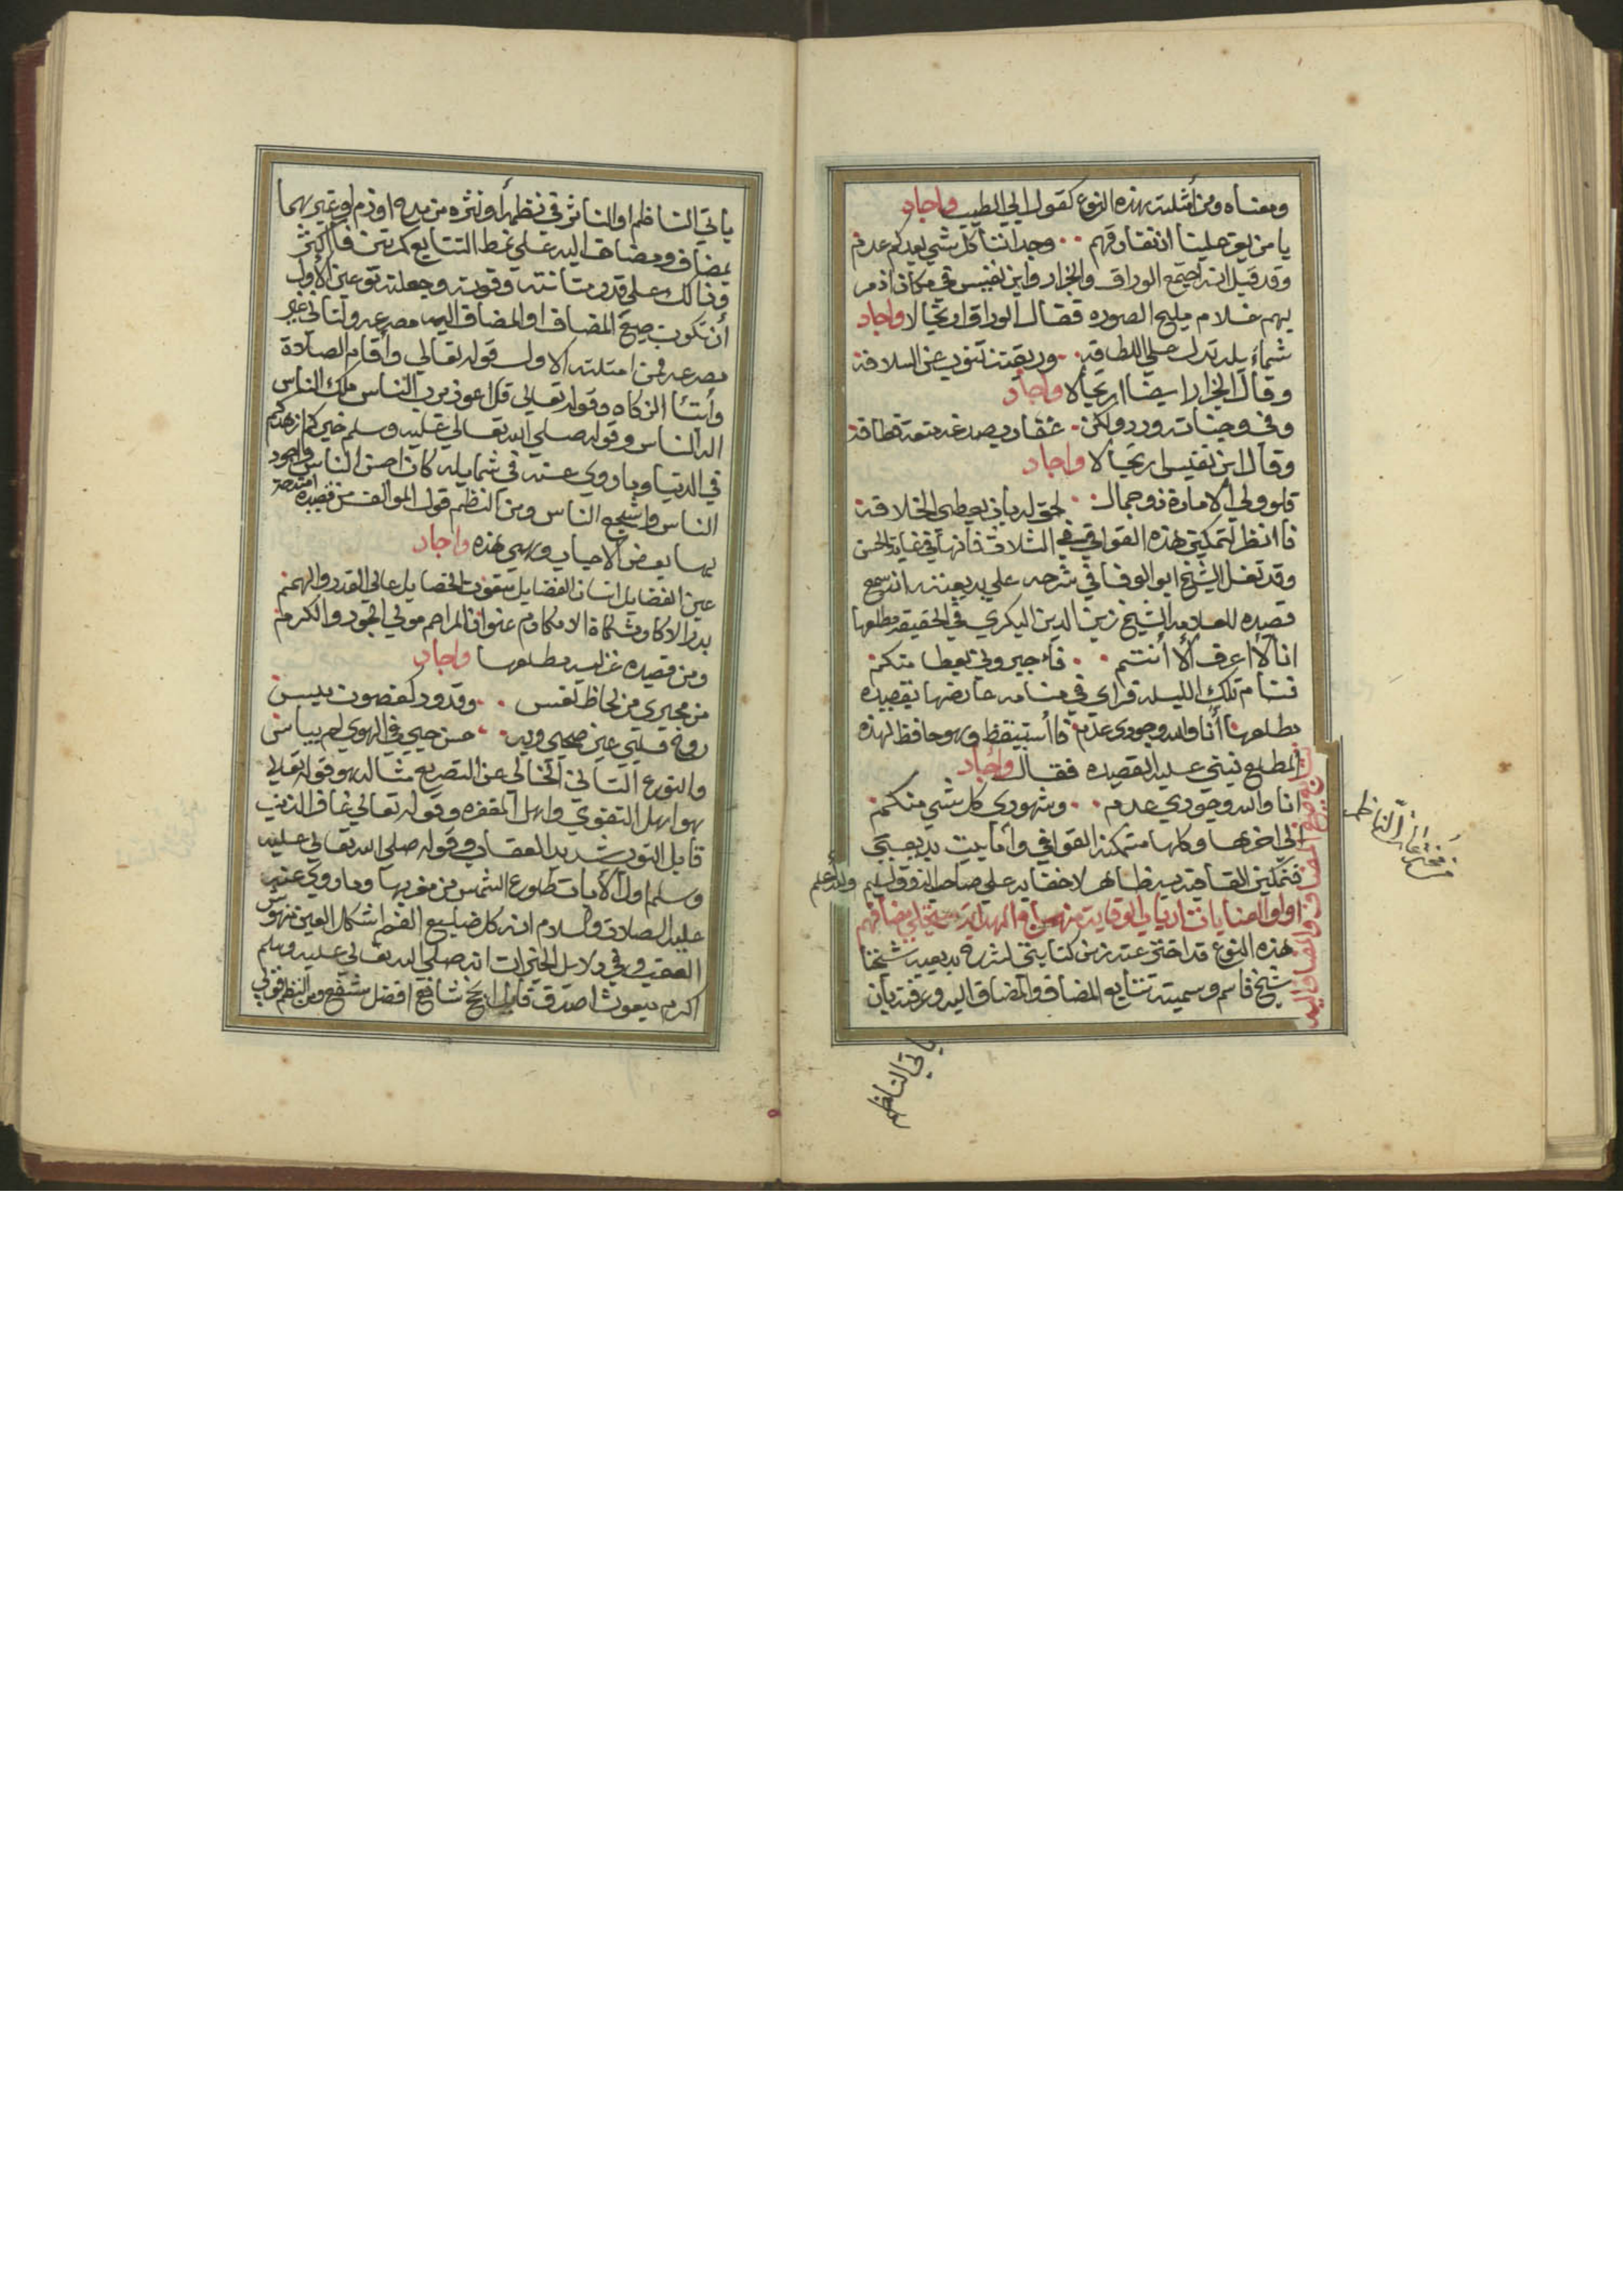 ومعناه ومن أمثلت هذه النوع كقول ابي الطيب واجاد
يا من يعز علينا ان نفارقهم وجداننا كل شي بعدكم عدم
وقد قيل انه اجتمع الوراق والجزار وابن نفيس في مكان اذ مر
بهم غلام مليح الصوره فقال الوراق ارتجالا واجاد
شمائله تدل على اللطافه وريقته تنوب عن السلافة
وقال الجزار ايضا ارتجالا واجاد
وفي وجناته ورد ولكن عقارب صدغه منعت قطافه
وقال ابن نفيس ارتجالا واجاد
فلو ولي الامارة ذو جمال لحق له بأن يعطى الخلافة
فانظر لتمكين هذه القوافي في الثلاث فانها في غاية الحسن
وقد نقل الشيخ ابو الوفا في شرحه على بديعيته انه سمع
قصيده للعلامه الشيخ زين الدين البكري في الحقيقه مطلعها
انا لا اعرف الا أنتم فاجبروني بعطا منكم
فنام تلك الليله فراى في منامه عارضها بقصيده
مطلعها أنا والله وجودي عدم فاستيقظ وهو حافظ لهذه
المطلع فبنى عليه القصيده فقال واجاد
انا والله وجودي عدم وشهودي كل شي منكم
الى اخرها وكلها متمكنة القوافي وأما بيت بديعيتي
فتمكين القافية فيه ظاهر لا خفا به على صاحب الذوق السليم والله أعلم
اولوا العنايات ارباب الوقاية منهاج الهداية
هذه النوع قد اخترعته زمن كتابتي لشرح بديعية شيخنا
شيخ قاسم وسميته تتابع المضاف والمضاف اليه وعرفته بأن
تتابع المضاف والمضاف اليه
مخترعات الناظم
ياتي الناظم
ياتي الناظم او الناثر في نظمه أو نثره من مدح او ذم او غيرهما
بمضاف ومضاف اليه على نمط التتابع مرتين فأكثر
وذالك على قدر متانته وقوته وجعلته نوعين الأول
أن تكون صيغ المضاف او المضاف اليه مصرعه والثاني غير
مصرعه فمن امثلته الاول قوله تعالى وأقام الصلاة
وأيتأ الزكاه وقوله تعالى قل اعوذ برب الناس ملك الناس
اله الناس وقوله صلى الله تعالى عليه وسلم خيركم ازهدكم
في الدنيا وما روي عنه في شمايله كان احسن الناس واجود
الناس واشجع الناس ومن النظم قول المؤلف من قصيده امتدحة
بها بعض الاحباب وهي هذه واجاد
عين الفضايل انسان الفضايل منعوت الخصايل عالى القدر والهمم
بدر الاكارم شكاة المكارم عنوان المراحم مولى الجود والكرم
ومن قصيده غزليه مطلعها واجاد
من مجيري من لحاظ نعس وقدود كغصون ميس
روح قلبي عين صحبي وبه حسن حبي في الهوى لم يباس
والنوع الثاني الخالي عن التصريع مثاله هو قوله تعالى
هو اهل التقوى واهل المغفره وقوله تعالى غافر الذنب
قابل التوب شديد العقاب وقوله صلى الله تعالى عليه
وسلم اول الأيات طلوع الشمس من مغربها وما روي عنه
عليه الصلاة والسلام انه كان ضليع الفم اشكل العين منهوس
العقب وفي دلايل الخيرات انه صلى الله تعالى عليه وسلم
اكرم مبعوث اصدق قايل انجح شافع افضل مشفع ومن النظم قولي